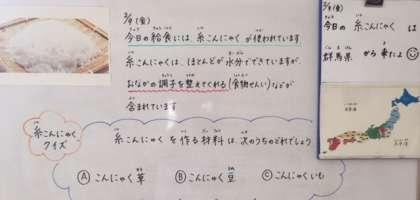 3/1(金)
今日の給食には、糸こんにゃくが使われています
糸こんにゃくは、ほとんどが水分でできていますが、
おなかの調子を整えてくれる(食物せんい)などが
含まれています
糸こんにゃく
クイズ
糸こんにゃくを作る材料は次のうちのどれでしょう
Ⓐこんにゃく草
Ⓑこんにゃく豆
Ⓒこんにゃくいも
3/1(金)
今日の糸こんにゃくは
群馬県から来たよ